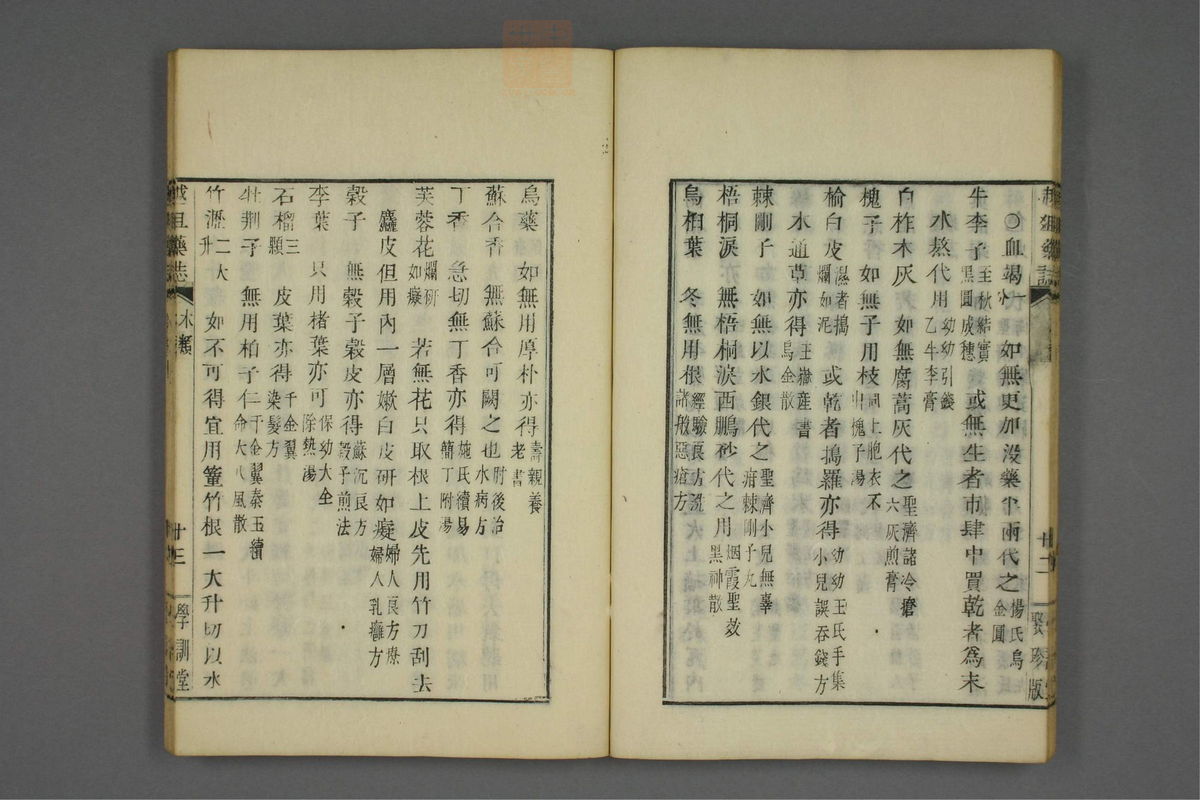 ○血竭 如無更加沒藥半兩代之 楊氏烏金圓
牛李子 至秋結實黑圓成穗 或無生者市肆中買乾者為末
水熬代用 幼幼引錢乙牛李膏
白柞木灰 如無腐蒿灰代之 聖濟諸冷瘡六灰煎膏
槐子 如無子用枝 同上胞衣不出槐子湯
榆白皮 濕者搗爛如泥 或乾者搗羅亦得 幼幼王氏手集小兒誤吞錢方
木通草亦得 王嶽產書烏金散
棘剛子 如無以水銀代之 聖濟小兒無辜疳棘剛子丸
梧桐淚 無梧桐淚西鵬砂代之用 烟霞聖效黑神散
烏桕葉 冬無用根 經驗良方洗諸般惡瘡方
烏藥 如無用厚朴亦得 壽親養老書
蘇合香 無蘇合可闕之也 肘後治水病方
丁香 急切無丁香亦得 施氏續易簡丁附湯
芙蓉花 爛研如癡 若無花只取根上皮先用竹刀刮去
麤皮但用內一層嫩白皮研如癡 婦人良方療婦人乳癰方
穀子 無穀子穀皮亦得 蘇沉良方穀子煎法
李葉 只用楮葉亦可 保幼大全除熱湯
石榴 三顆 皮葉亦得 千金翼染髮方
牡荆子 無用柏子仁 千金翼秦王續命大八風散
竹瀝 二大升 如不可得宜用篁竹根一大升切以水
木類
廿二
聚珍版
木類
廿三
學訓堂